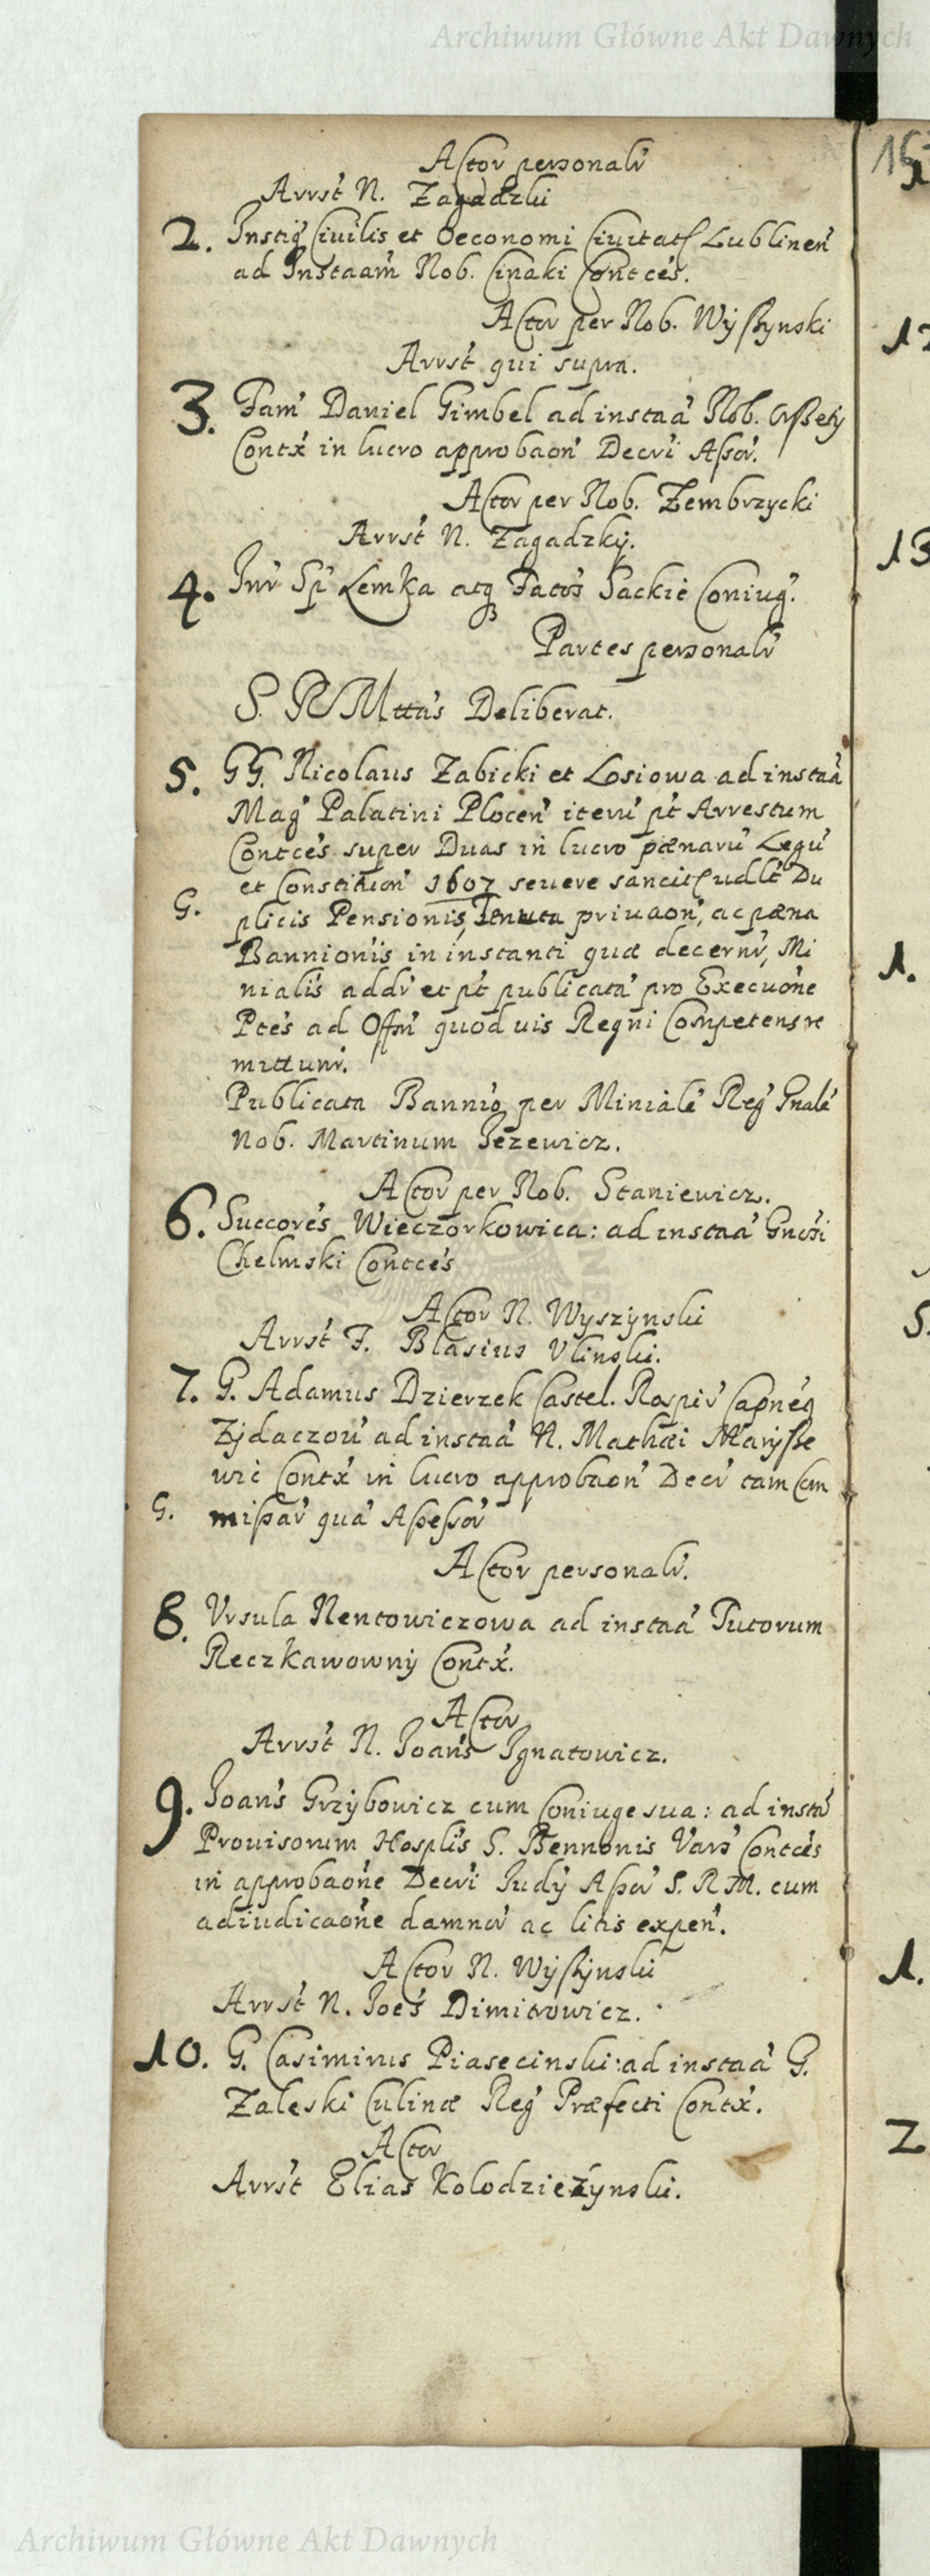 Archiwum Główne Akt Dawnych
Actor personalr
Arrst N. Zagadzki
2. Instig Civilis et Oeconomi Civitat Lublinen
ad Instaam Nob. Cinaki Contces.
Actor per Nob. Wyßynski
Arrst qui supra.
3. Fam Daniel Gimbel ad instaa Nob.
Contx in lucro approbaon Decri Aßor.
Actor per Nob. Zembrzycki
Arrst N. Zagadzky.
4. Inr Sp Lemka atq Jackie Coniug.
Partes personalr
S. R Mttas Deliberat.
5. GG. Nicolaus Zabicki et Losiowa ad instaa
Mag Palatini Plocen iteru pt Arrestum
Contces super Duas in lucro pænaru Legu
et Constitution 1607 severe sancit udlt Du
G. plicis Pensionis, Tenuta privaon, ac pæna
Bannionis in instanti quæ decernr, Mi
nialis addr et pt publicata pro Execuone
Ptes ad Offm quoduis Regni Competens re
mittunr.
Publicata Bannio per Miniale Reg Gnale
Nob. Martinum Jezewicz.
Actor per Nob. Staniewicz.
6. Succores Wieczorkowica: ad instaa Gnosi
Chelmski Contces
Actor N. Wyszynski
Arrst F. Blasius Ulinski.
7. G. Adamus Dzierzek Castel. Rospir Capneq
Zydaczou ad instaa N. Mathæi Maryße
wic Contx in lucro approbaon Decr tam Com
G. mißar qua Aßeßor
Actor personalr.
8. Ursula Nentowiczowa ad instaa Tutorum
Reczkawowny Contx.
Actor
Arrst N. Joans Ignatowicz.
9. Joans Grzybowicz cum Coniuge sua: ad insta
Provisorum Hosplis S. Bennonis Vars Contces
in approbaone Decri Judy Aßor S. R M. cum
adiudicaone damnor ac litis expen.
Actor N. Wyßynski
Arrst N. Joes Dimitrowicz.
10. G. Casimirus Piasecinski: ad instaa G.
Zaleski Culinæ Reg Præfecti Contx.
Actor
Arrst Elias Kolodzieżynski.
Archiwum Główne Akt Dawnych